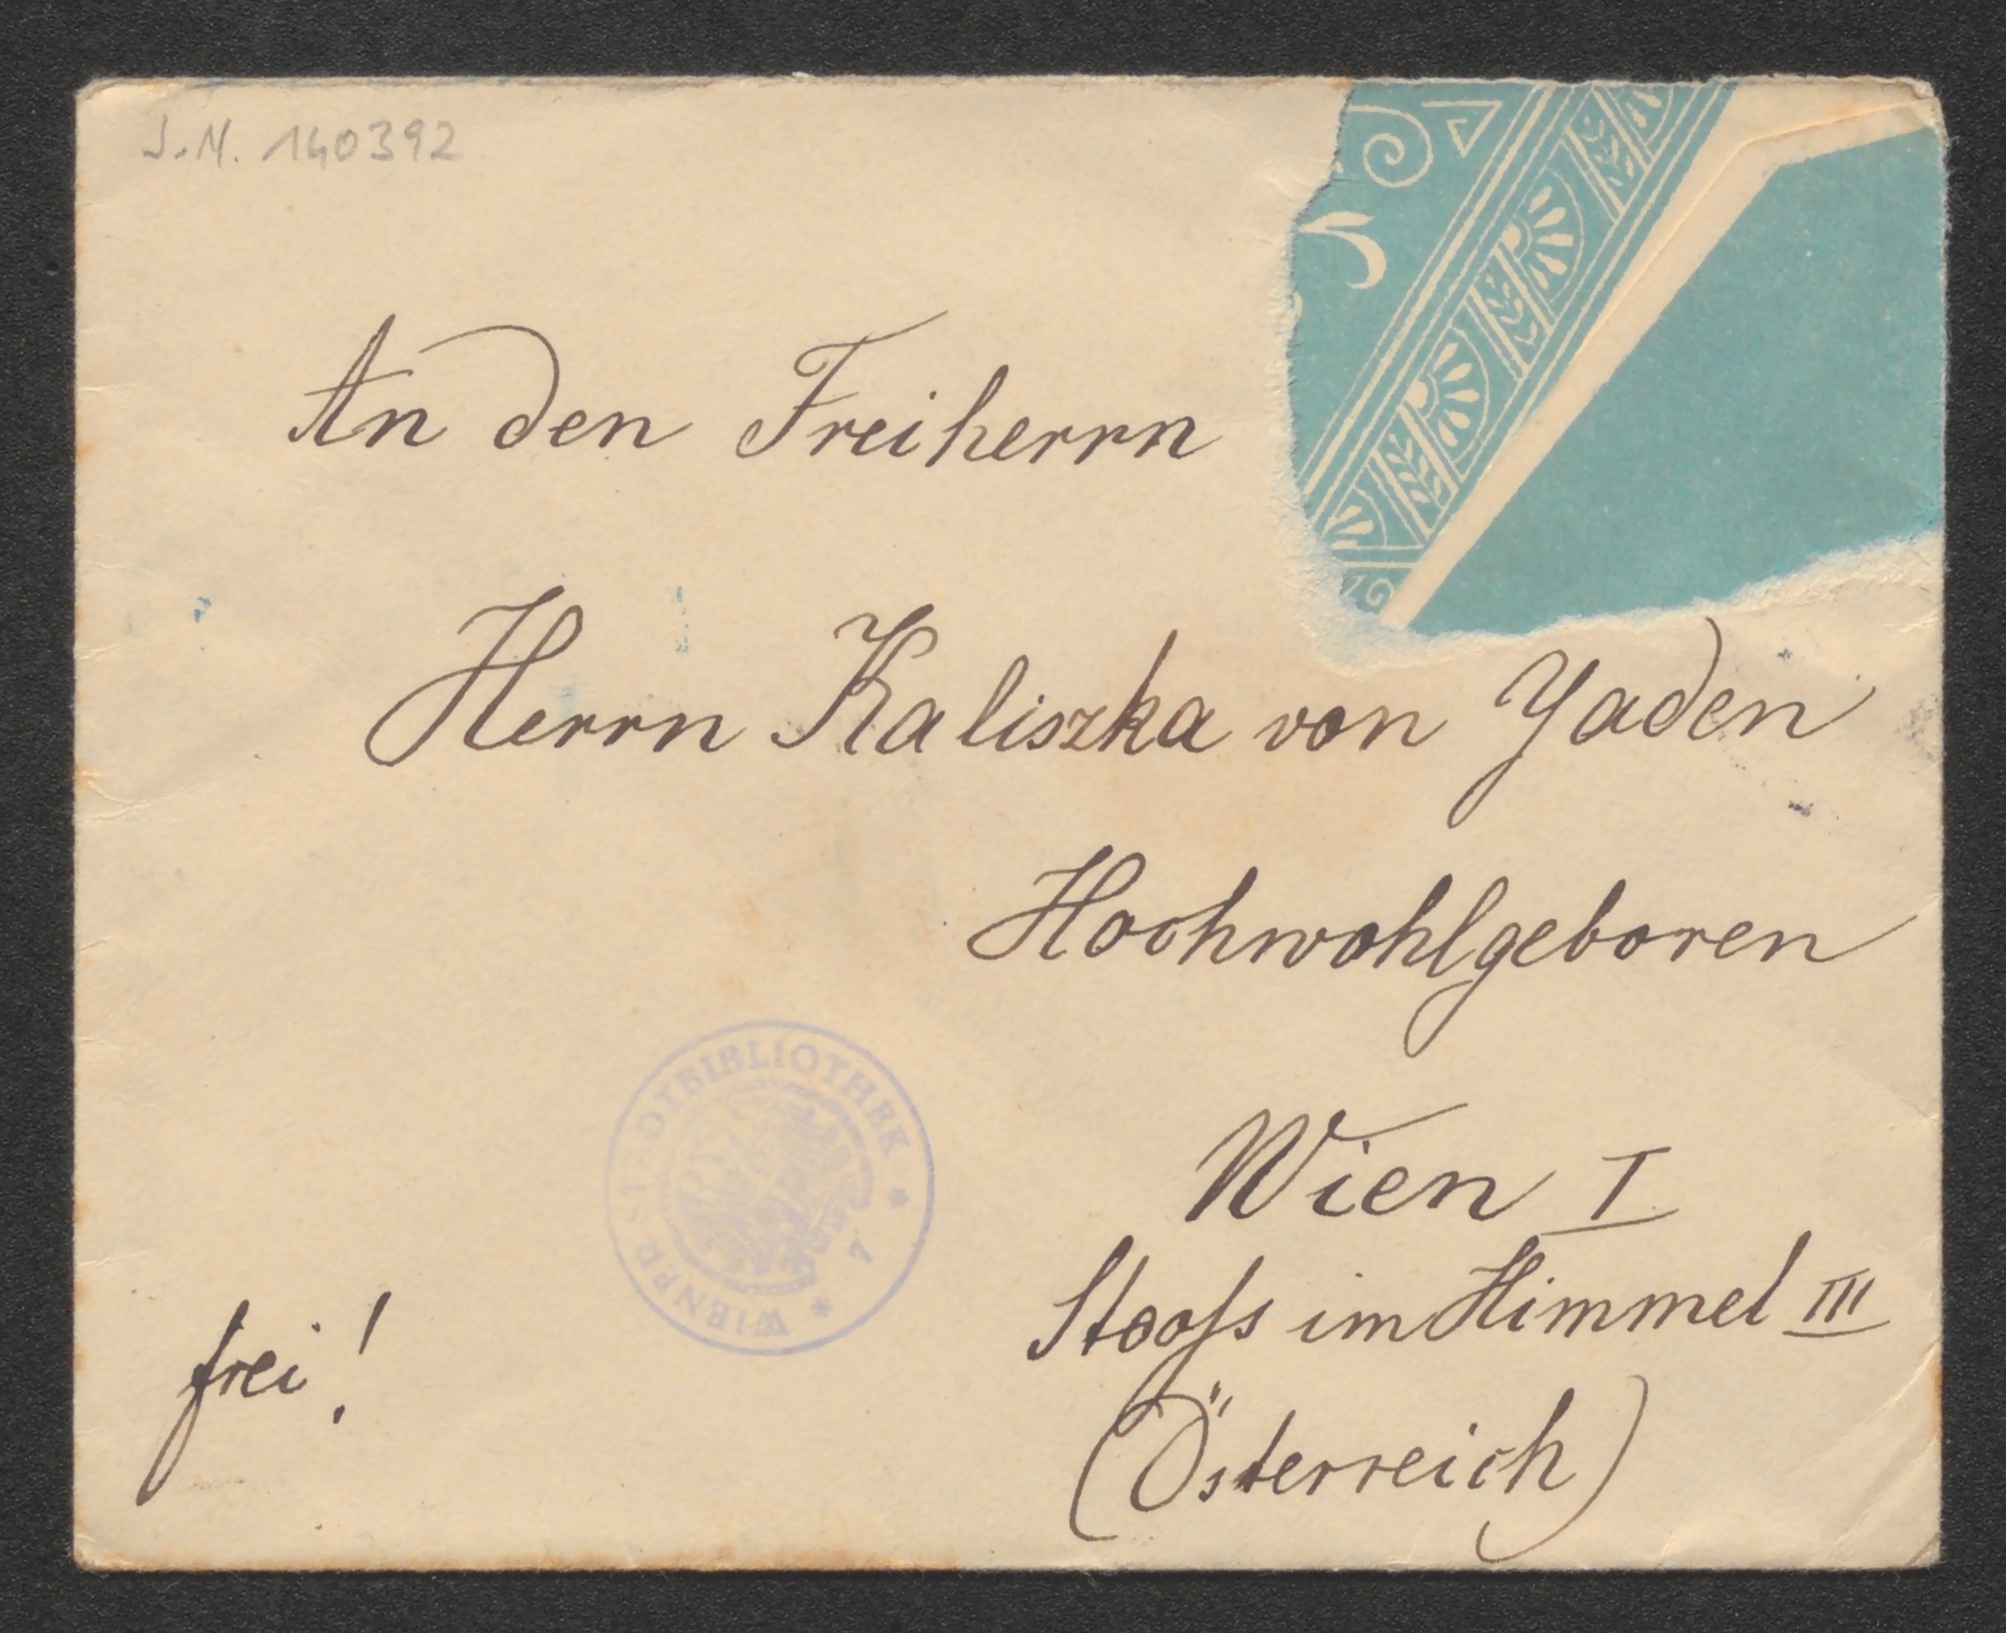 J.N. 140392
An den Freiherrn
Herrn Kaliszka von Yaden
Hochwohlgeboren
Wien I
Stooss im Himmel III
(Österreich)
frei!
WIENER STADTBIBLIOTHEK * 7 *